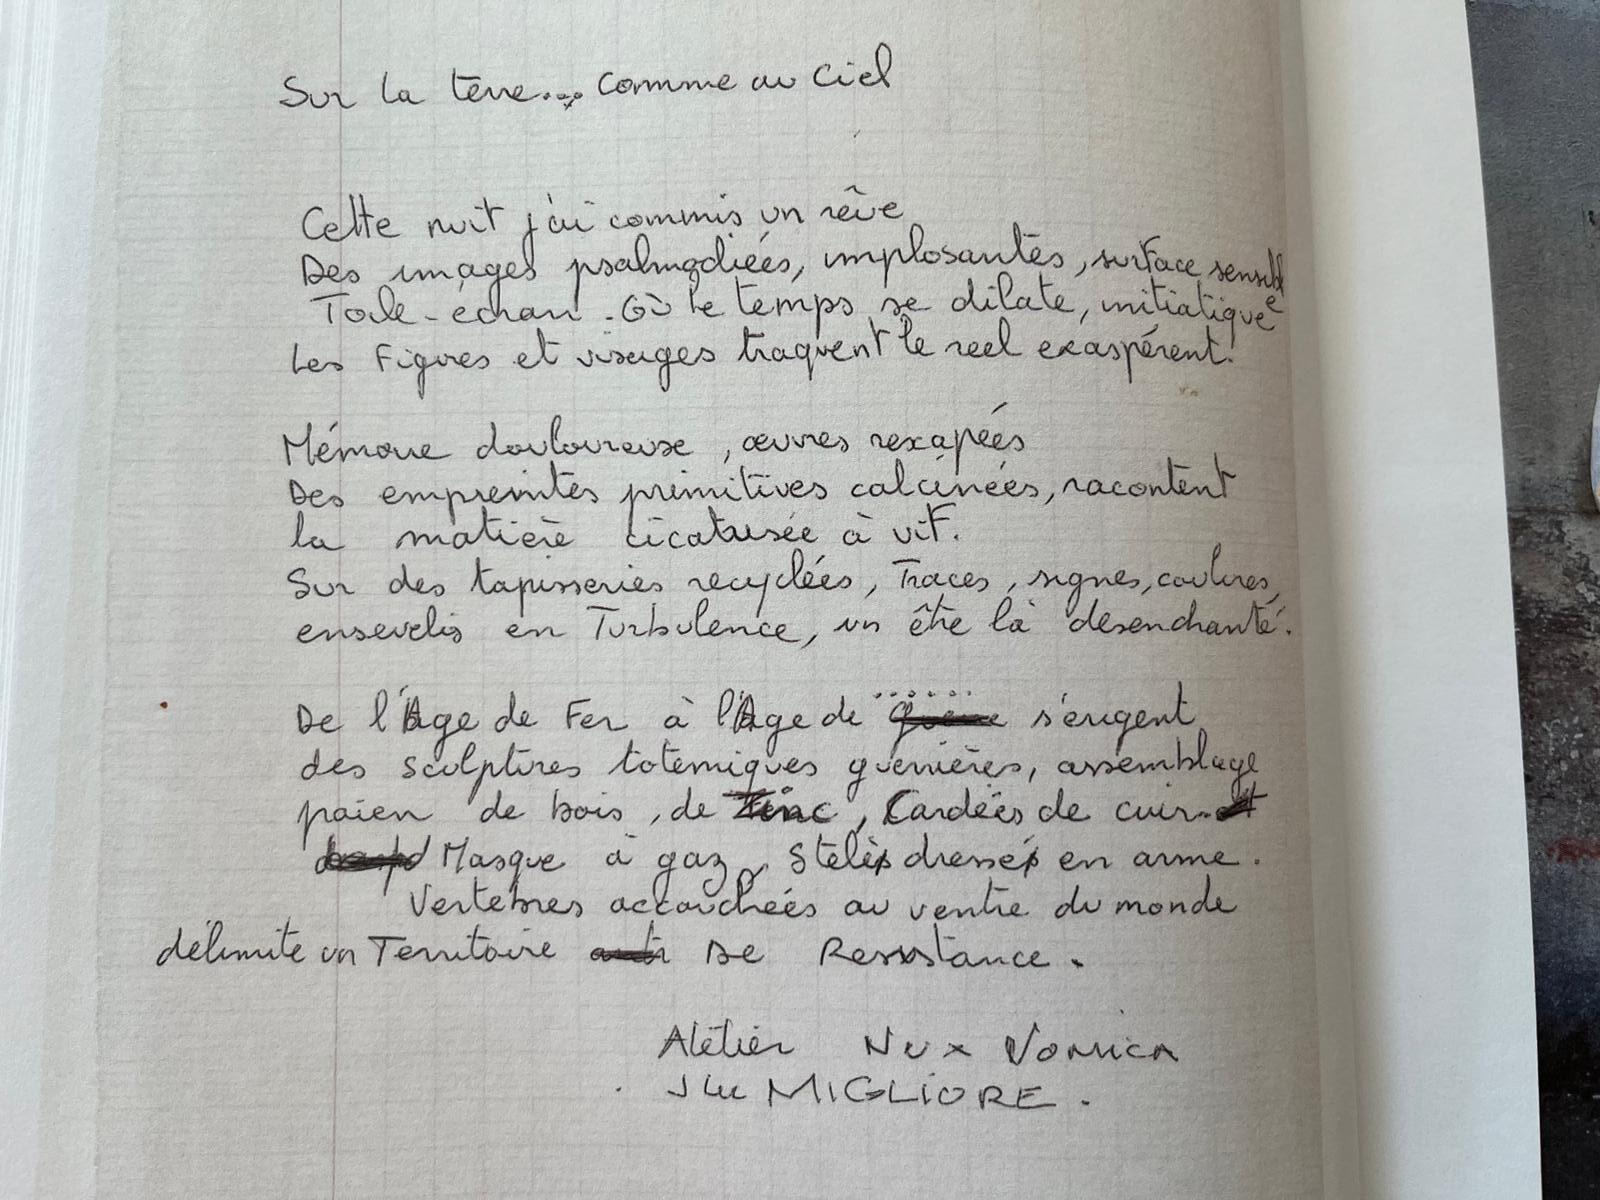 Sur la terre... Comme au Ciel
Cette nuit j'ai commis un rêve
Des images psalmodiées, implosantes, surface sensible
Toile-écran. Où le temps se dilate, initiatique
Les Figures et visages traquent le réel exaspérent.
Mémoire douloureuse, œuvres rexapées
Des empreintes primitives calcinées, racontent
la matière cicatrisée à vif.
Sur des tapisseries recyclées, Traces, signes, coulures,
ensevelis en Turbulence, un être là désenchanté.
De l'Age de Fer à l'Age de s'érigent
des sculptures totemiques guerrières, assemblage
paien de bois, de Zinc, Cardées de cuir
Masque à gaz, Stèle dressé en arme.
Vertèbres accouchées au ventre du monde
délimite un Territoire De Resistance.
Atelier Nux Vomica
MIGLIORE.